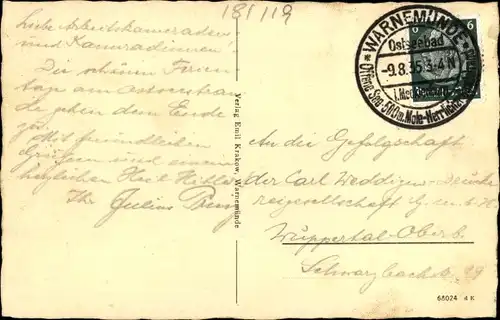 181/119
Liebe Arbeitskameraden
und Kameradinnen!
Die schönen Ferien-
tage am Ostseestrand
gehen dem Ende
zu. Mit freundlichen
Grüssen und einem
herzlichen Heil Hitler
Ihr Julius
Verlag Emil Krakow, Warnemünde
* WARNEMÜNDE *
Ostseebad
-9.8.35.3-4 N
i. Meckl
Offene See-500m. Mole-Herrlicher
6
An die Gefolgschaft
der Carl Weddigen-
G.m.b.H.
Wuppertal-Oberb.
Schwarzbach 29
68024 4 K